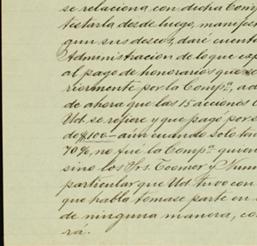 se relaciona, con dicha Comp
testarla desde luego, manifes
gun sus deseos, daré cuenta
Administracion de lo que exp
al pago de honorarios que
riormente por la Compª, a
de ahora que las 15 acciones
Ud. se refiere y que pagó por
de $100 - aún cuando solo
70%, no fué la Compª quien
sino los Srs. Toomer y
particular que Ud. tuvo con
que habla tomase parte en
de ninguna manera, co
rá.